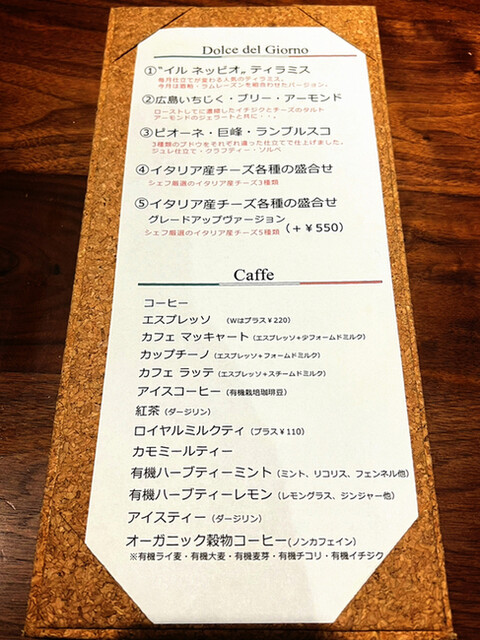 Dolce del Giorno
①“イル ネッビオ„ ティラミス
毎月仕立てが変わる人気のティラミス。
ラムレーズンを組合わせたバージョン。
②広島いちじく・ブリー・アーモンド
ローストしてに濃縮したイチジクとチーズのタルト
アーモンドのジェラートと共に・・。
③ピオーネ・巨峰・ランブルスコ
3種類のブドウをそれぞれ違った仕立てで仕上げました。
ジュレ仕立て・クラフティー・ソルベ
④イタリア産チーズ各種の盛合せ
シェフ厳選のイタリア産チーズ3種類
⑤イタリア産チーズ各種の盛合せ
グレードアップヴァージョン
(+¥550)
シェフ厳選のイタリア産チーズ5種類
Caffe
コーヒー
エスプレッソ (Wはプラス¥220)
カフェ マッキャート(エスプレッソ+少フォームドミルク)
カップチーノ(エスプレッソ+フォームドミルク)
カフェ ラッテ(エスプレッソ+スチームドミルク)
アイスコーヒー(有機栽培珈琲豆)
紅茶(ダージリン)
ロイヤルミルクティ(プラス¥110)
カモミールティー
有機ハーブティーミント(ミント、リコリス、フェンネル他)
有機ハーブティーレモン(レモングラス、ジンジャー他)
アイスティー(ダージリン)
オーガニック穀物コーヒー(ノンカフェイン)
※有機ライ麦・有機大麦・有機麦芽・有機チコリ・有機イチジク